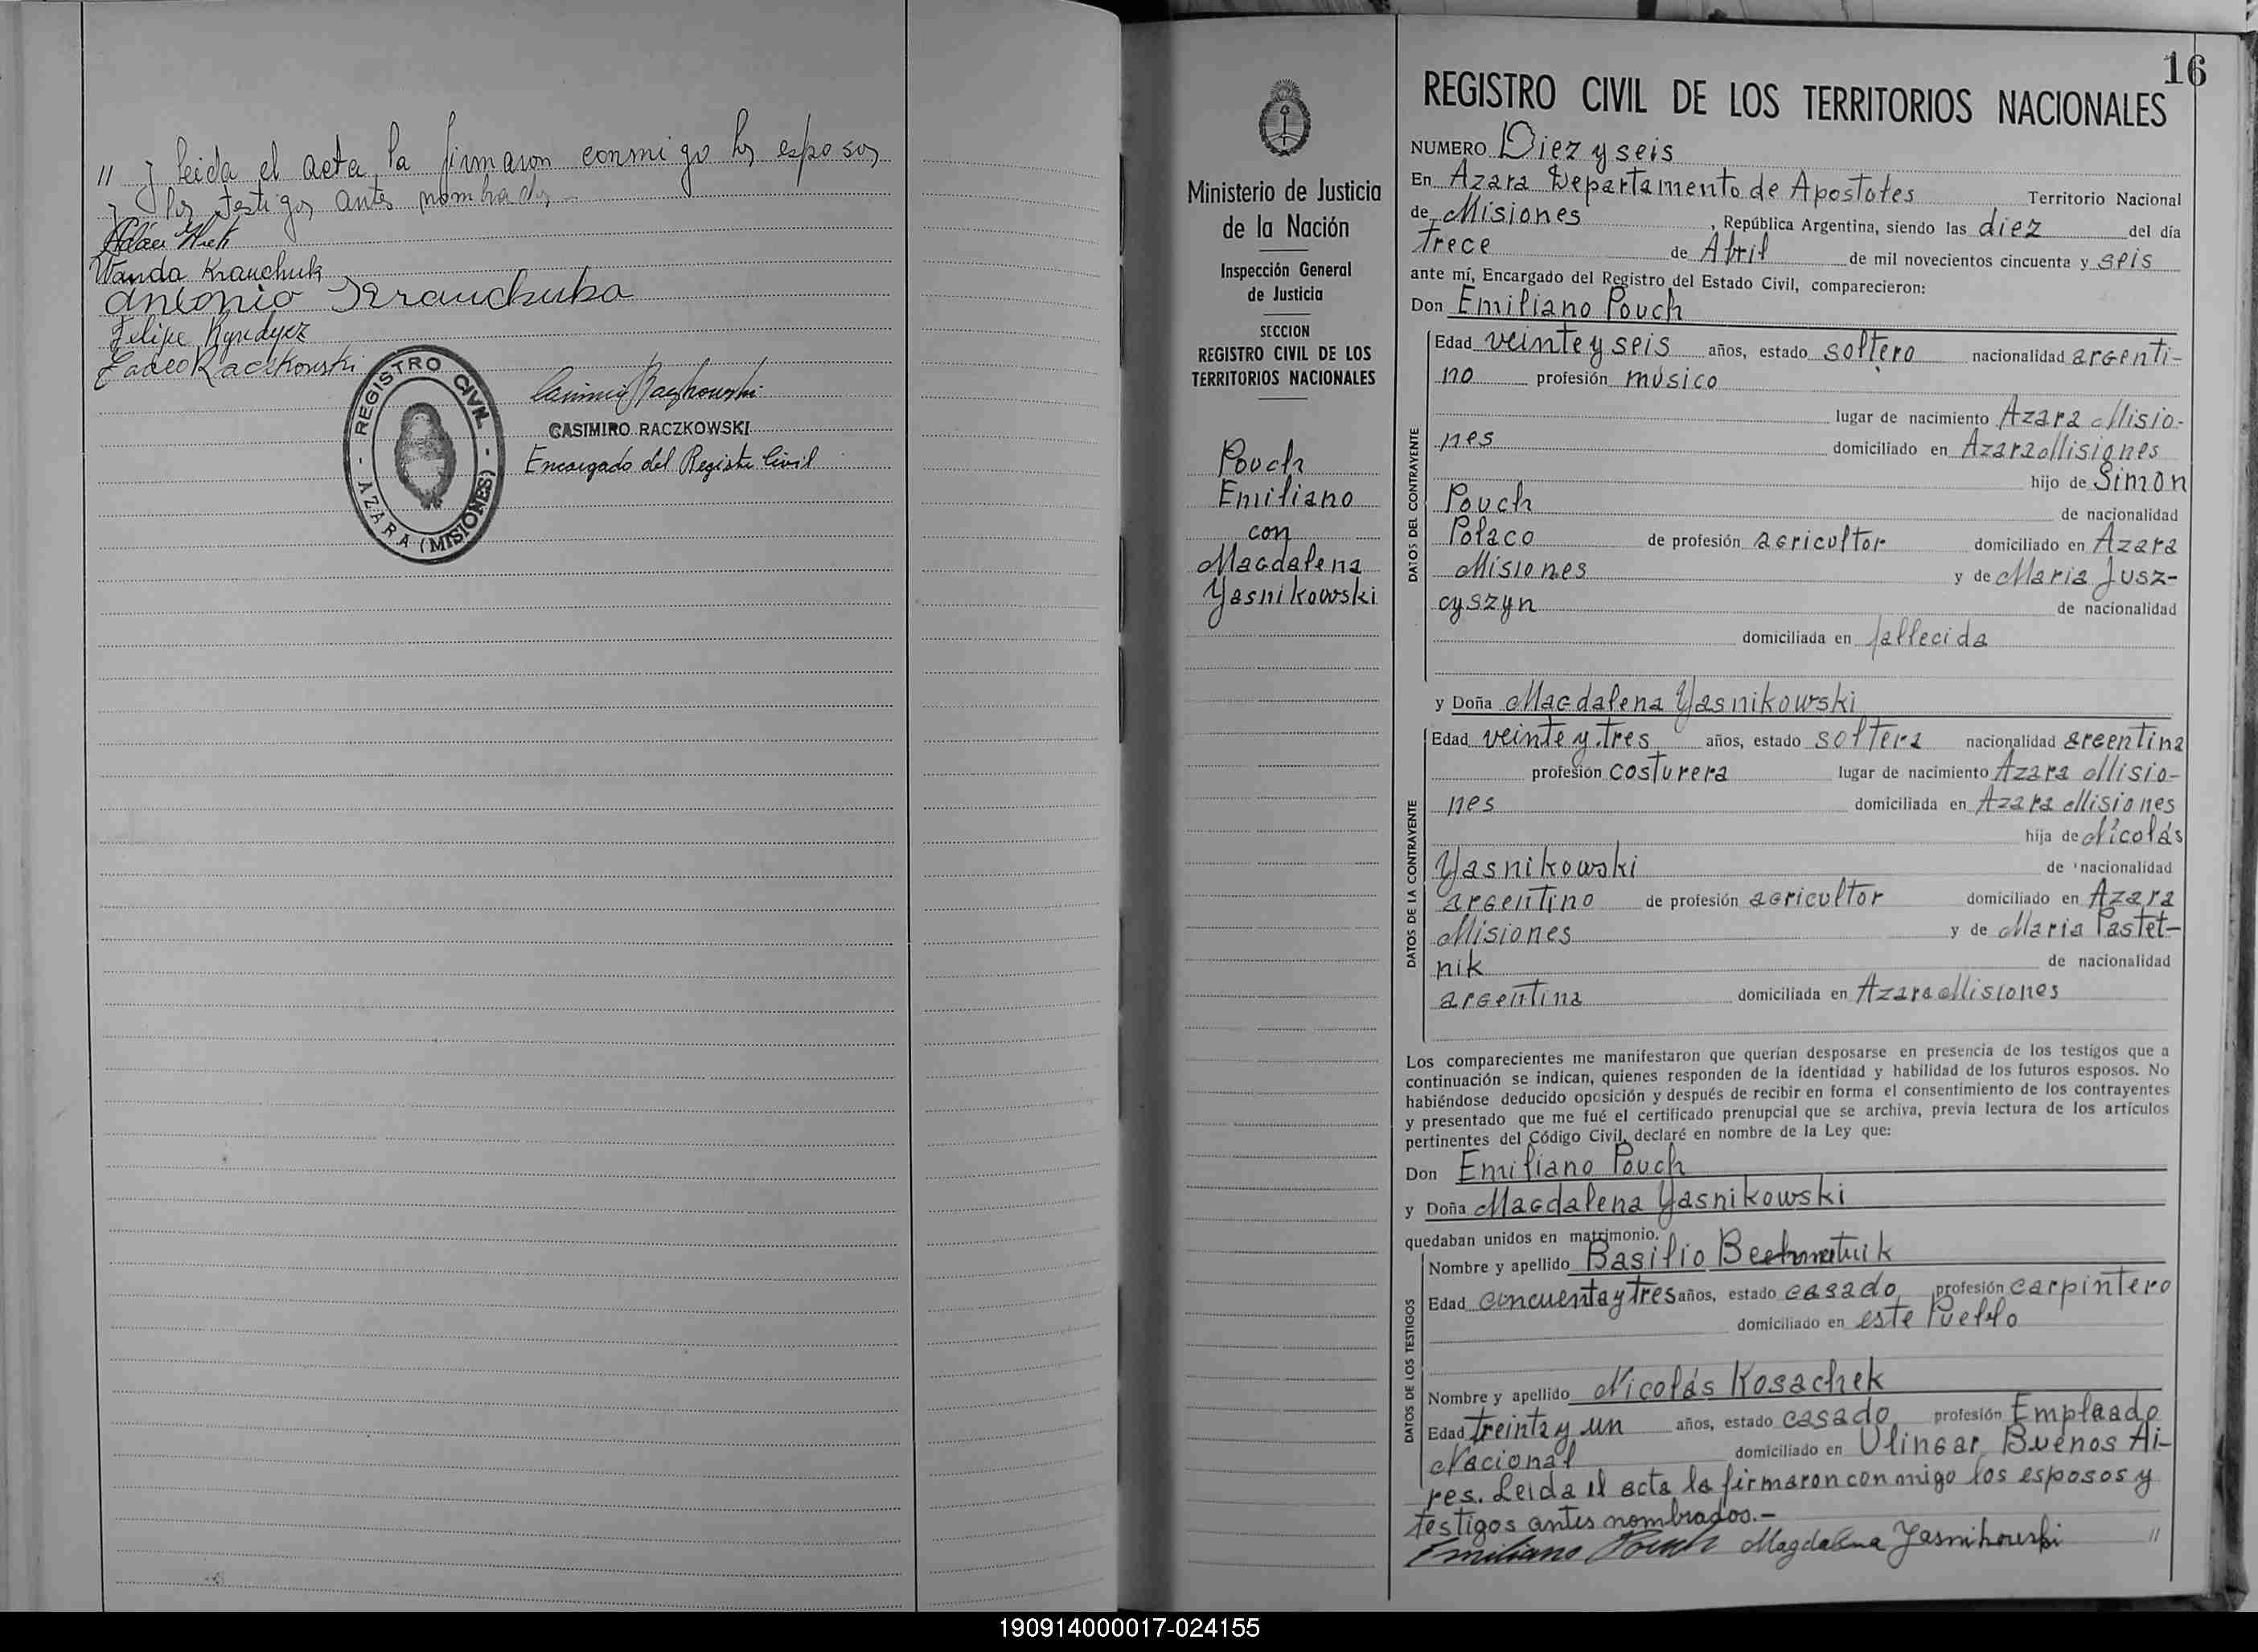 " y leida el acta la firmaron conmigo los esposos
y los testigos antes nombrados.-
Wanda Kranchuk
Antonio
Felipe
Tadeo Raczkowski
REGISTRO CIVIL - AZARA (MISIONES) -
Casimiro Raczkowski
CASIMIRO RACZKOWSKI
Encargado del Registro Civil
Ministerio de Justicia
de la Nación
Inspección General
de Justicia
SECCION
REGISTRO CIVIL DE LOS
TERRITORIOS NACIONALES
Pouch
Emiliano
con
Magdalena
Yasnikowski
16
REGISTRO CIVIL DE LOS TERRITORIOS NACIONALES
NUMERO Diez y seis
En Azara Departamento de Apostoles Territorio Nacional
de Misiones, República Argentina, siendo las diez del día
trece de Abril de mil novecientos cincuenta y seis
ante mí, Encargado del Registro del Estado Civil, comparecieron:
Don Emiliano Pouch
DATOS DEL CONTRAYENTE
Edad veinte y seis años, estado soltero nacionalidad argenti-
no profesión músico
lugar de nacimiento Azara Misio-
nes domiciliado en Azara Misiones
hijo de Simon
Pouch de nacionalidad
Polaco de profesión agricultor domiciliado en Azara
Misiones y de Maria Jusz-
cyszyn de nacionalidad
domiciliada en fallecida
y Doña Magdalena Yasnikowski
DATOS DE LA CONTRAYENTE
Edad veinte y tres años, estado soltera nacionalidad argentina
profesión costurera lugar de nacimiento Azara Misio-
nes domiciliada en Azara Misiones
hija de Nicolás
Yasnikowski de nacionalidad
argentino de profesión agricultor domiciliado en Azara
Misiones y de Maria Pastet-
nik de nacionalidad
argentina domiciliada en Azara Misiones
Los comparecientes me manifestaron que querían desposarse en presencia de los testigos que a
continuación se indican, quienes responden de la identidad y habilidad de los futuros esposos. No
habiéndose deducido oposición y después de recibir en forma el consentimiento de los contrayentes
y presentado que me fué el certificado prenupcial que se archiva, previa lectura de los artículos
pertinentes del Código Civil, declaré en nombre de la Ley que:
Don Emiliano Pouch
y Doña Magdalena Yasnikowski
quedaban unidos en matrimonio.
DATOS DE LOS TESTIGOS
Nombre y apellido Basilio
Edad cincuenta y tres años, estado casado profesión carpintero
domiciliado en este Pueblo
Nombre y apellido Nicolás Kosachek
Edad treinta y un años, estado casado profesión Empleado
Nacional domiciliado en Ulingar Buenos Ai-
res. Leida el acta la firmaron conmigo los esposos y
testigos antes nombrados.-
Emiliano Pouch Magdalena Yasnikowski "
190914000017-024155